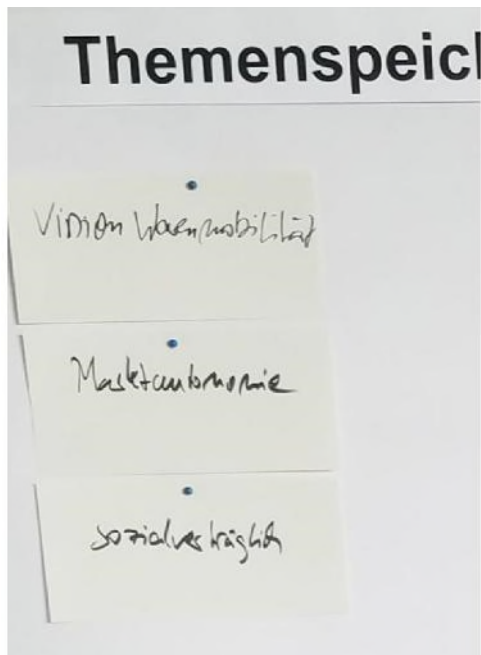 Themenspeic
Vision Warenmobilität
Marktautonomie
sozialverträglich